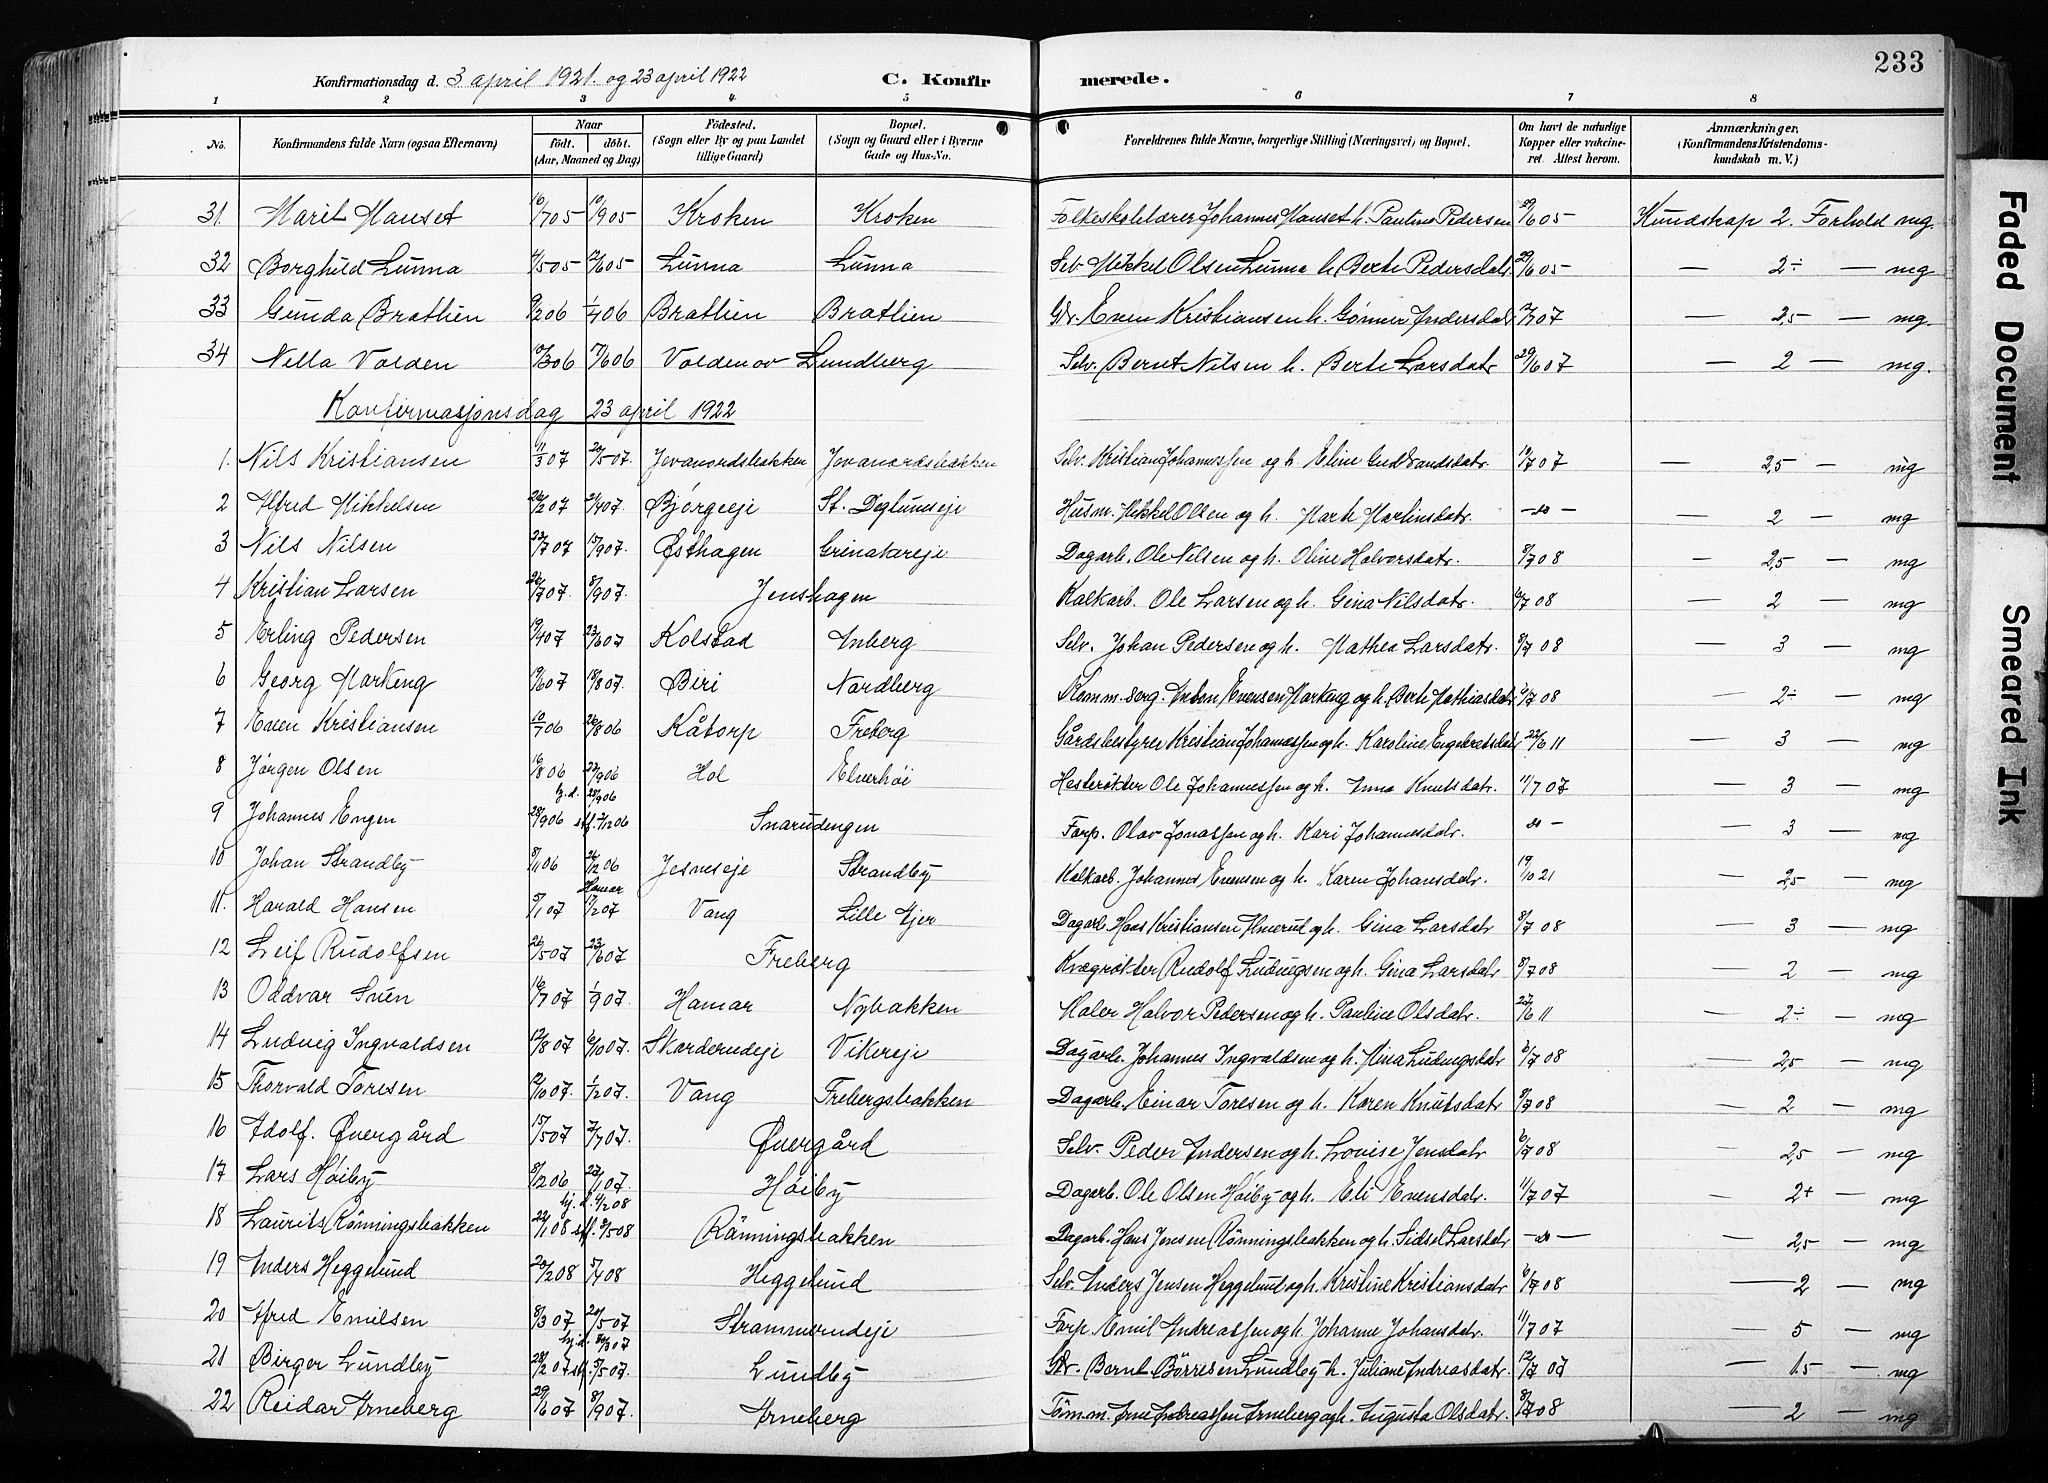 233
Konfirmationsdag d. 3 april 1921. og 23 april 1922 C. Konfirmerede.
1 2 3 4 5 6 7 8
No. Konfirmandens fulde Navn (ogsaa Efternavn) Naar født. døbt. (Aar, Maaned og Dag) Fødested. (Sogn eller By og paa Landet tillige Gaard) Bopæl. (Sogn og Gaard eller i Byerne Gade og Hus-No. Forældrenes fulde Navne, borgerlige Stilling (Næringsvei) og Bopæl. Om havt de naturlige Kopper eller vakcineret Attest herom. Anmærkninger. (Konfirmandens Kristendomskundskab m. V.)
31. Marit Manset 16/7 05 10/9 05 Kroken Kroken Folkeskolelærer Johannes Manset h. Pauline Pedersen 29/6 05 - Kundskap 2. Forhold mg.
32 Borghild Lunna 4/5 05 12/6 05 Lunna Lunna Selv. Mikkel Olsen Lunna h. Berte Pedersdatr. 29/6 05 - — 2÷ — mg
33 Gunda Bratlien 9/2 06 1/4 06 Bratlien Bratlien Gbr. Even Kristiansen h. Gønner Andersdatr 2/7 07 — 2,5 — mg.
34 Nella Volden 10/3 06 17/6 06 Volden ov Lundberg Selv. Bernt Nilsen h. Berte Larsdatr 29/6 07 — 2 — mg.
Konfirmasjonsdag 23 april 1922
1. Nils Kristiansen 11/3 07 20/5 07. Jevanordsbakken Jevanordsbakken Selv. Kristian Johannessen og h. Eline Gudbrandsdatr. 11/7 07 — 2,5 — mg
2 Alfred Mikkelsen 26/2 07 21/4 07. Bjørgeeje St. Deglumseje Husm. Mikkel Olsen og h. Marte Martinsdatr. -do- — 2 — mg
3 Nils Nilsen 22/7 07 15/9 07. Østhagen Grinakereje Dagarb. Ole Nilsen og h. Oline Halvorsdatr. 8/7 08 — 2,5 — mg
4 Kristian Larsen 26/7 07. 8/9 07. Jenshagen Kalkarb. Ole Larsen og h. Gina Nilsdatr. 6/7 08 — 2 — mg
5 Erling Pedersen 19/4 07 23/6 07 Kolstad Anberg Selv. Johan Pedersen og h. Mathea Larsdatr. 8/7 08 — 3 — mg
6 Georg Markeng 19/6 07 18/8 07. Biri Nordberg Komm.serg. Anton Evensen Markeng og h. Berte Mathiasdatr 6/7 08 — 2÷ — mg
7 Even Kristiansen 10/7 06 26/8 06 Kåtorp Freberg Gårdsbestyrer Kristian Johannessen og h. Karoline Engebretsdatr 22/6 11 — 3 — mg
8 Jørgen Olsen 16/8 06 23/9 06 Hol Elverhøi Hesterøkter Ole Johannessen og h. Anna Knutsdatr. 11/7 07 — 3 — mg
9 Johannes Engen 28/9 06 hj. d. 28/9 06 stf. 2/12 06 Snarudengen Forp. Olav Jonassen og h. Kari Johannesdatr. do - — 3 — mg
10 Johan Strandby 8/11 06 26/12 06 Jesneseje Strandby Kalkarb. Johannes Evensen og h. Karen Johansdatr. 19/10 21 — 2,5 — mg
11. Harald Hansen 5/1 07 Hamar 17/2 07 Vang Lille Ajer Dagarb. Hans Kristiansen Almerud og h. Gina Larsdatr 8/7 08 — 3 — mg
12 Leif Rudolfsen 26/5 07 23/6 07 Freberg Kvægrøkter Rudolf Ludvigsen og h. Gina Larsdatr 8/7 08 — 2 — mg
13 Oddvar Svén 16/7 07 1/9 07. Hamar Nybakken Maler Halvor Pedersen og h. Pauline Olsdatr. 22/6 11 — 2÷ — mg
14 Ludvig Ingvaldsen 12/8 07 6/10 07. Skarderudeje Vikereje Dagarb. Johannes Ingvaldsen og h. Mina Ludvigsdatr 6/7 08 — 2,5 — mg
15 Thorvald Toresen 12/10 07. 1/12 07. Vang Frebergsbakken Dagarb. Einar Toresen og h. Karen Knutsdatr 8/7 08 — 2 — mg
16 Adolf. Øvergård 15/5 07 7/7 07. Øvergård Selv. Peder Andersen og h. Lovise Jensdatr 6/7 08 — 2,5 — mg
17 Lars Høiby 8/12 06 27/1 07. Høiby Dagarb. Ole Olsen Høiby og h. Eli Evensdatr. 11/7 07 — 2+ — mg
18 Laurits Rønningsbakken 22/1 08 hj. d. 4/2 08 stf. 3/5 08 Rønningsbakken Dagarb. Hans Jensen Rønningsbakken og h. Sidsel Larsdatr - do - — 2,5 — mg
19 Anders Heggelund 20/2 08 5/4 08 Heggelund Selv. Anders Jensen Heggelund og h. Kristine Kristiansdatr 6/7 08 — 2 — mg
20 Alfred Emilsen 8/3 07 20/5 07 Strammerudeje Forp. Emil Andreassen og h. Johanne Johansdatr. 11/7 07 — 5 — mg
21 Birger Lundby 28/2 07 hj.d. 30/3 07 stf. 5/5 07. Lundby Gbr. Bernt Børresen Lundby h. Juliane Andreasdatr. 12/7 07 — 1.5 — mg
22 Reidar Arneberg 29/6 07 8/9 07. Arneberg Tømm. Arne Andreassen Arneberg og h. Augusta Olsdatr. 8/7 08 — 2 — mg
Faded Document
Smeared Ink